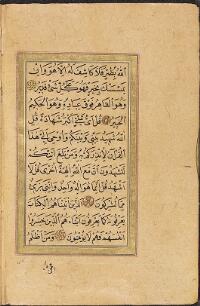 الله بضر فلا كاشف له الا هو وان
يمسسك بخير فهو على كل شئ قدير
وهو القاهر فوق عباده وهو الحكيم
الخبير قل اى شئ اكبر شهادة قل
الله شهيد بينى وبينكم واوحى الى هذا
القرآن لانذركم به ومن بلغ ائنكم
لتشهدون ان مع الله الهة اخرى قل لا
اشهد قل انما هو اله واحد واننى برئ
مما تشركون الذين اتيناهم الكتاب
يعرفونه كما يعرفون ابناءهم الذين خسروا
انفسهم فهم لا يؤمنون ومن اظلم